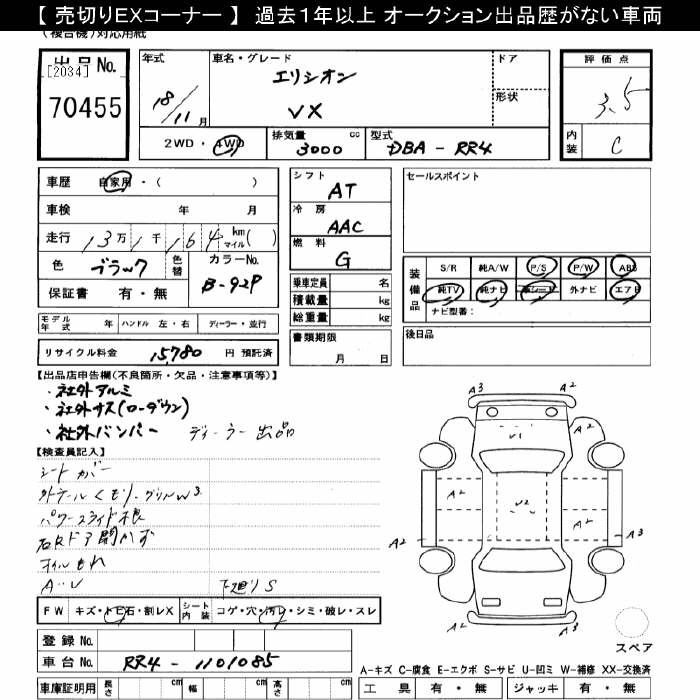 【 売切りEXコーナー 】 過去1年以上 オークション出品歴がない車両
(複合機)対応用紙
出品No.
[2034]
70455
年式
18/11月
車名・グレード
エリシオン
VX
ドア
形状
評価点
3.5
内装
C
2WD・4WD
排気量
3000
cc
型式
DBA - RR4
車歴
自家用・( )
車検 年 月
走行 13万1千164 km マイル( )
色 ブラック 色替
カラーNo.
B-92P
保証書 有・無
シフト
AT
冷房
AAC
燃料
G
乗車定員 名
積載量 kg
総重量 kg
書類期限
月 日
セールスポイント
装備品
S/R 純A/W P/S P/W ABS
純TV 純ナビ 革シート 外ナビ エアB
ナビ型番:
後日品
モデル年式 年 ハンドル 左・右 ディーラー・並行
リサイクル料金 15,780 円 預託済
【出品店申告欄(不良箇所・欠品・注意事項等)】
・社外アルミ
・社外サス(ローダウン)
・社外バンパー ディーラー出品
【検査員記入】
シートカバー
外テールくもり・グリルW3
パワースライド不良
右Rドア開かず
オイルもれ
A・・V 下廻りS
FW キズ・トビ石・割レX
シート内装 コゲ・穴・汚レ・シミ・破レ・スレ
登録No.
車台No. RR4 - 1101085
車庫証明用 長さ cm 幅 cm 高さ cm
A3 A2
A2 A2
V1
A2 V2 A2
A2 A3
A2 A3
スペア
A-キズ C-腐食 E-エクボ S-サビ U-凹ミ W-補修 XX-交換済
工具 有・無 ジャッキ 有・無